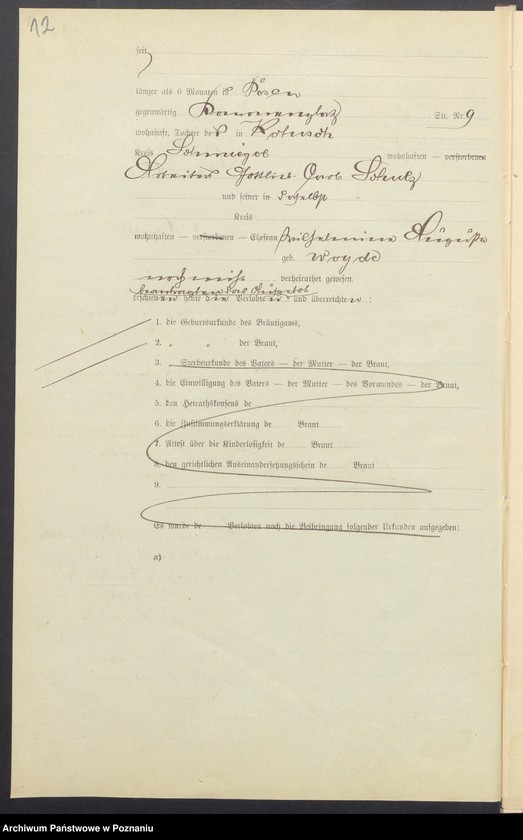 12
seit
länger als 6 Monaten in Posen
gegenwärtig Str. Nr. 9
wohnhaft, Tochter des in Kotusch
Kreis Schmiegel wohnhaften — verstorbenen
Arbeiters Gottlieb Schulz
und seiner in daselbst
Kreis
wohnhaften — verstorbenen — Ehefrau Wilhelmine Auguste
geb. Woyde
noch nicht verheirathet gewesen.
beantragten das Aufgebot
erschienen heute die Verlobten und überreichten :
1. die Geburtsurkunde des Bräutigams,
2. „ „ der Braut,
3. „ Sterbeurkunde des Vaters — der Mutter — der Braut,
4. die Einwilligung des Vaters — der Mutter — des Vormundes — der Braut,
5. den Heirathskonsens de
6. die Zustimmungserklärung de Braut
7. Attest über die Kinderlosigkeit de Braut
8. den gerichtlichen Auseinandersetzungsschein de Braut
9.
Es wurde de Verlobten noch die Beibringung folgender Urkunden aufgegeben:
a)
Archiwum Państwowe w Poznaniu